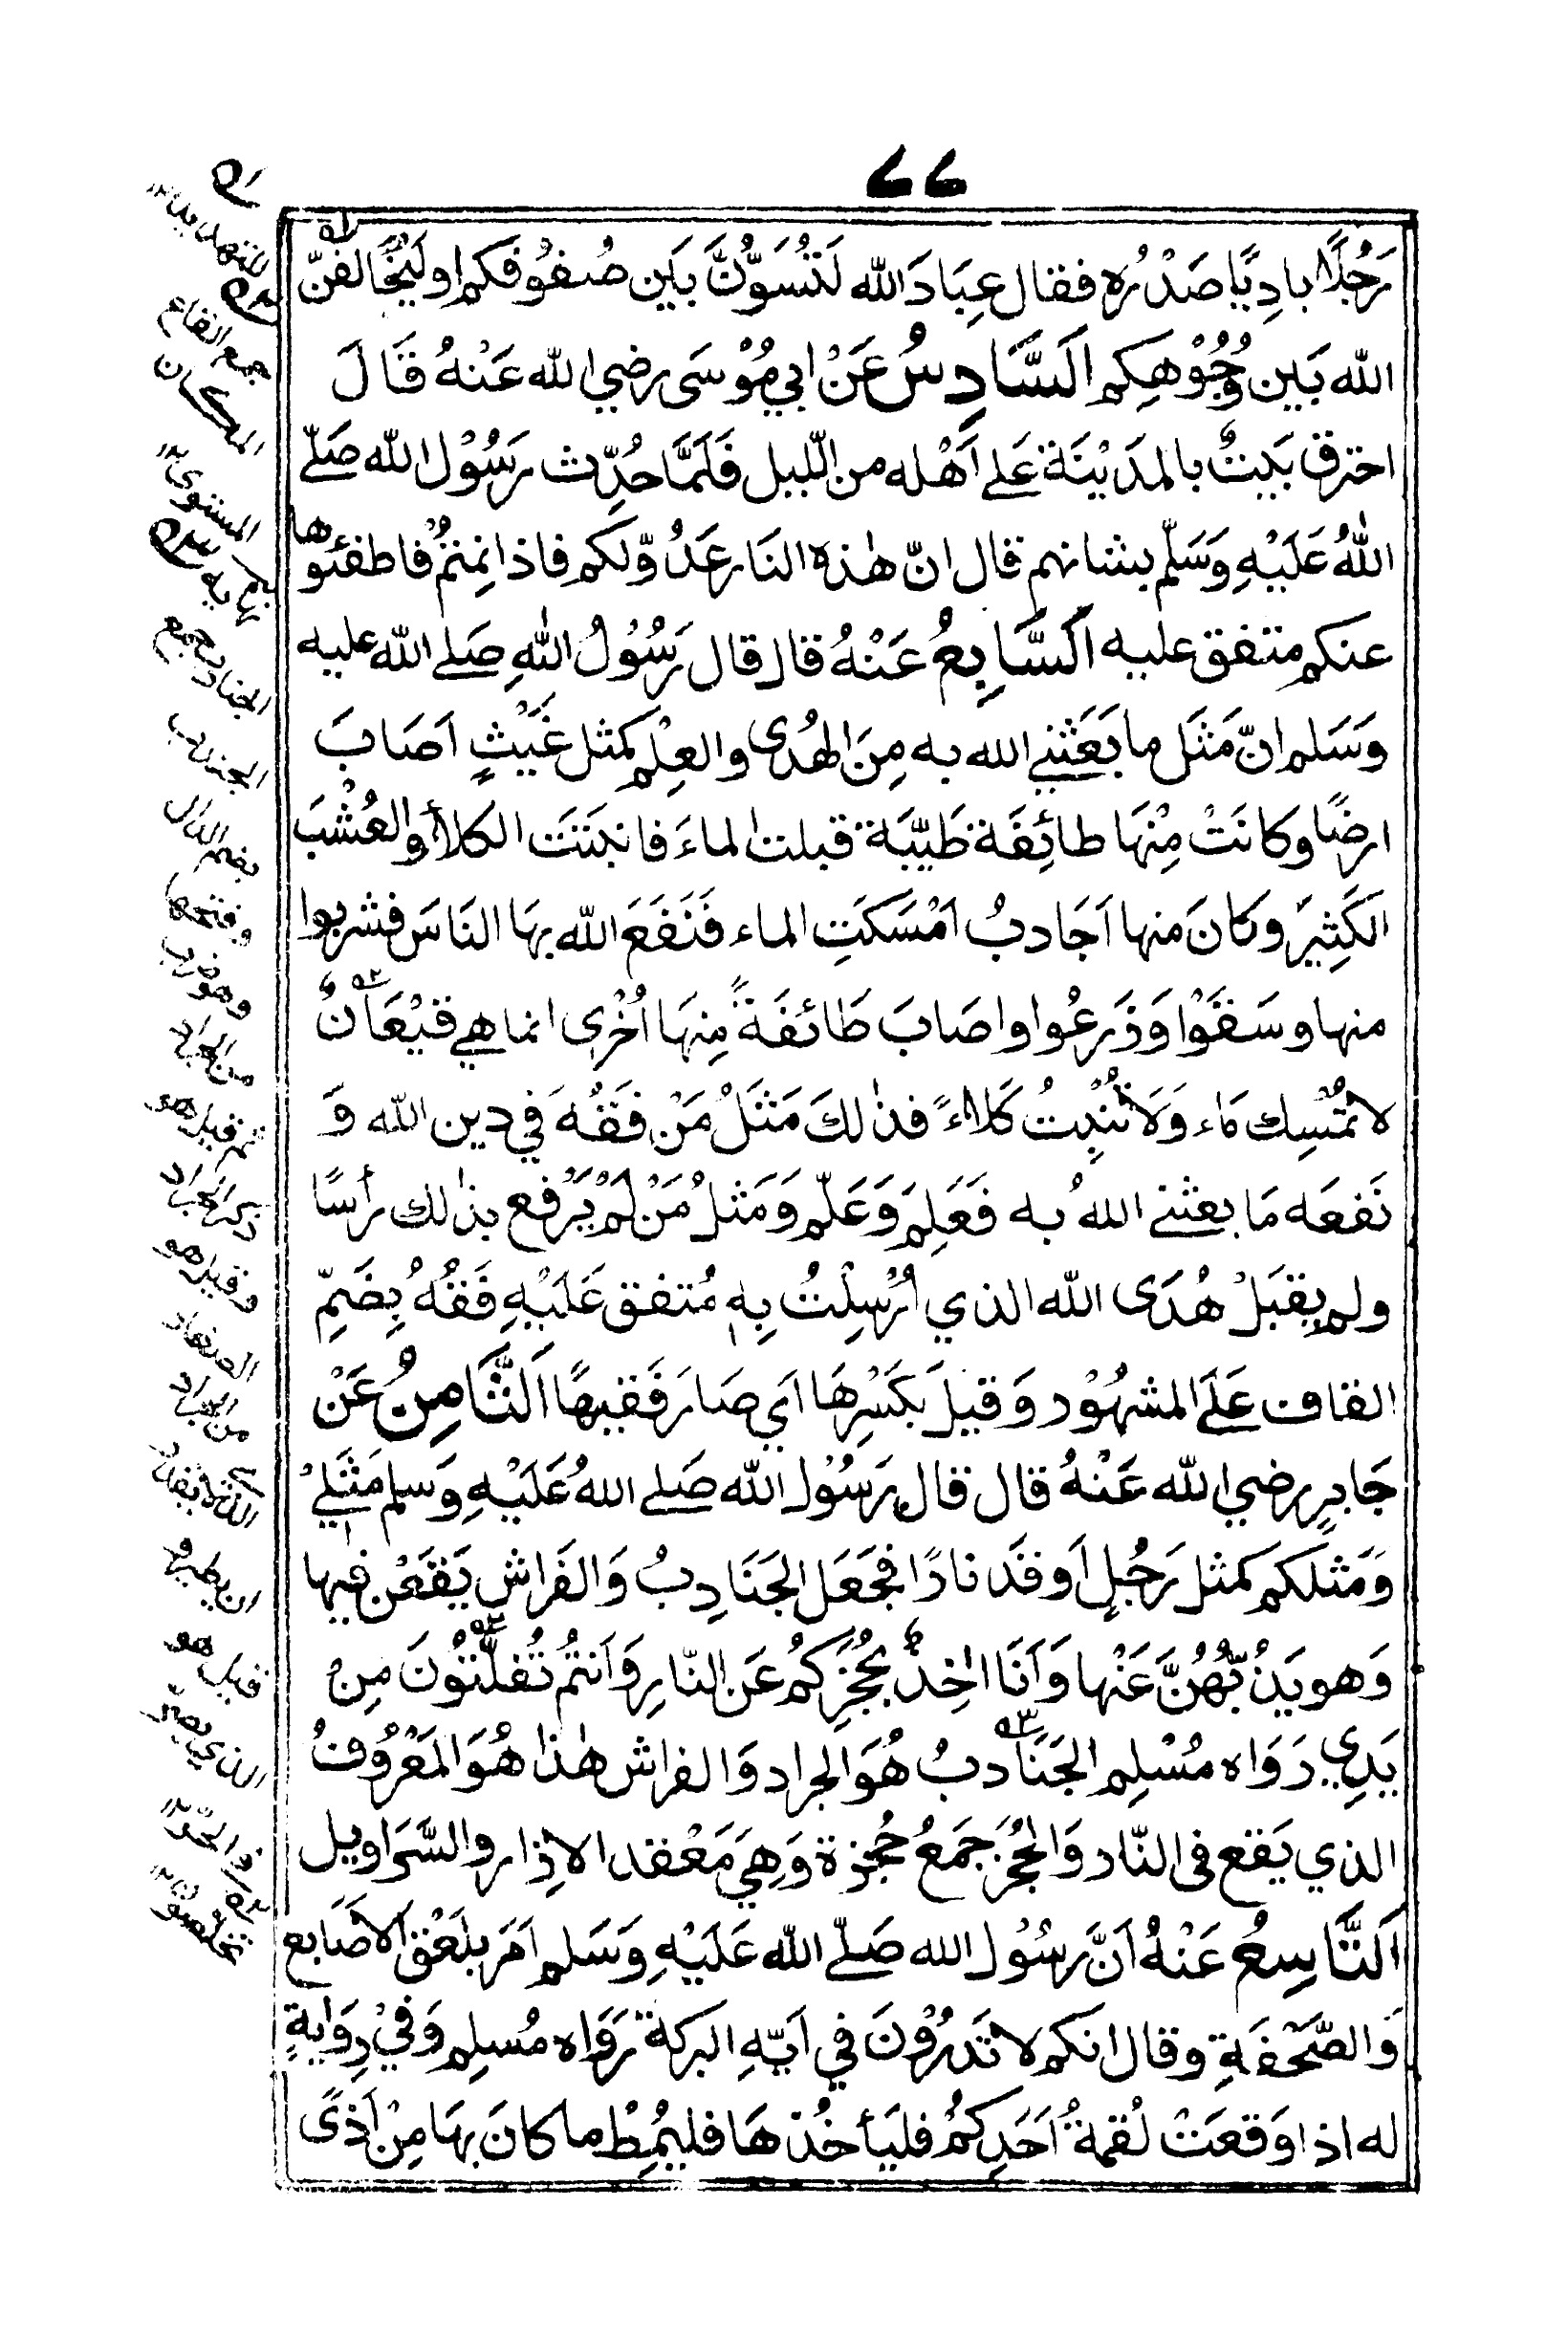 ٧٧
رَجُلًا بادِيًا صَدْرُه فقال عِبَادَ الله لَتُسَوُّنَّ بَيَن صُفوُفكم او لَيُخَالفنّ
الله بَيَن وُجُوْهِكم اَلسَّادِسُ عَنْ ابي مُوْسَى رضي الله عَنْهُ قَالَ
احترق بَيتٌ بالمدَيْنَة عَلے اَهْله من اللّيل فَلَمَّا حُدِّث رَسُوْل الله صَلّے
اللهُ عَلَيْهِ وَسَلّم بشانهم قال انّ هٰذه النَار عَدُوّ لكم فاذا نِمتُمْ فاطفئوها
عنكم متفق عليه اَلسَّابِعُ عَنْهُ قال قال رَسُوُلُ اللهِ صَلے الله عليه
وَسَلم انّ مَثَل ما بَعَثَنے الله به مِنَ الهُدى والعِلْم كمثل غَيْثٍ اَصَابَ
ارضًا وكانَتْ مِنْهَا طائِفَة طَيّبَة قبلت الماءَ فانبَتَتَ الكلأ والعُشْبَ
الكَثِيَر وكَانَ منها اَجَادبُ اَمْسَكَتِ الماء فَنَفَعَ الله بهَا النَاسَ فشربوا
منها وسَقَوْا وَزَرعُوا واصَابَ طَائفَةً مِنهَا اُخْرى انما هي قيْعَانٌ
لا تُمْسِك مَاء وَلَا تُنْبِتُ كَلاءً فذٰلكَ مَثَلُ مَنْ فَقُهَ في دين الله وَ
نَفعَه مَا بعثنے اللهُ به فَعَلِمَ وَعَلّم وَمَثلُ مَنْ لَمْ يَرْفع بذٰلك رأسًا
ولم يقبَلْ هُدَى الله الذي اُرْسِلْتُ بِه مُتفق عَلَيْهِ فَقُهُ بِضَمِّ
القاف عَلَے المشهُوْر وَقيلَ بكَسْرِهَا اَي صَارَ فَقيهًا اَلثَّامِنُ عَنْ
جَابرٍ رضي الله عَنْهُ قال قال رَسُوْل الله صَلے اللهُ عَلَيْهِ وَسلم مَثَلِيْ
وَمَثلكم كمثل رَجُلٍ اَوقَد نارًا فجَعَل الجَنَادِبُ وَالفَراش يَقَعْن فيها
وَهو يَذُبّهُنَّ عَنْها وَاَنَا اٰخِذٌ بحُجَزِكُم عَن النّارِ وَاَنتُم تُفلّتُوُنَ مِنْ
يَدِي رَوَاه مُسْلِم الجَنَادبُ هُوَ الجراد وَالفراش هٰذا هُوَ المَعْرُوْفُ
الذي يَقع فى النّار وَالحُجَزُ جَمَعُ حُجْزة وَهِيَ مَعْقد الازار والسَّرَاويل
اَلتَّاسِعُ عَنْهُ اَنَّ رسُوُل الله صَلّے الله عَلَيْهِ وَسَلم اَمَر بلَعْق الاَصَابع
وَالصَّحْفَةِ وقال انكم لا تَدرُوْنَ في اَيّهِ البركة رَوَاه مُسلِم وَفيْ رِوَايةٍ
له اذا وَقعَتْ لُقمةُ اَحَدِكُم فليَأخُذهَا فليُمِطْ ما كانَ بهَا مِنْ اَذًى
جمع القاع
المكان
المستوى
نهايه
الجنادب جمع
الجندب
بضم الدال
وفتحها
وهو ضرب
من الجراد
ثم قيل هو
ذكر الجراد
وقيل هو
الصغار
من الجراد
ان يطير و
قيل هو
الذي يصر